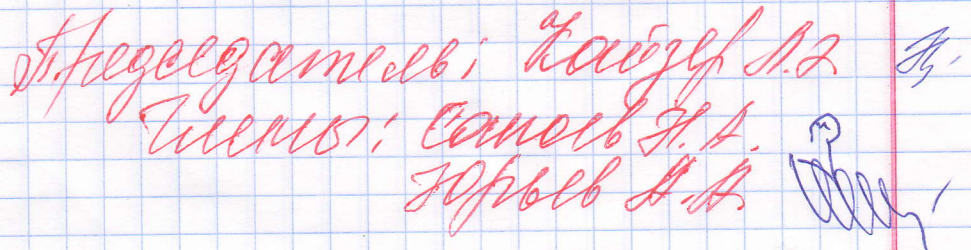 Председатель: Кайзер А.Э.
Члены: Сапоев Н.А.
Юрьев А.А.